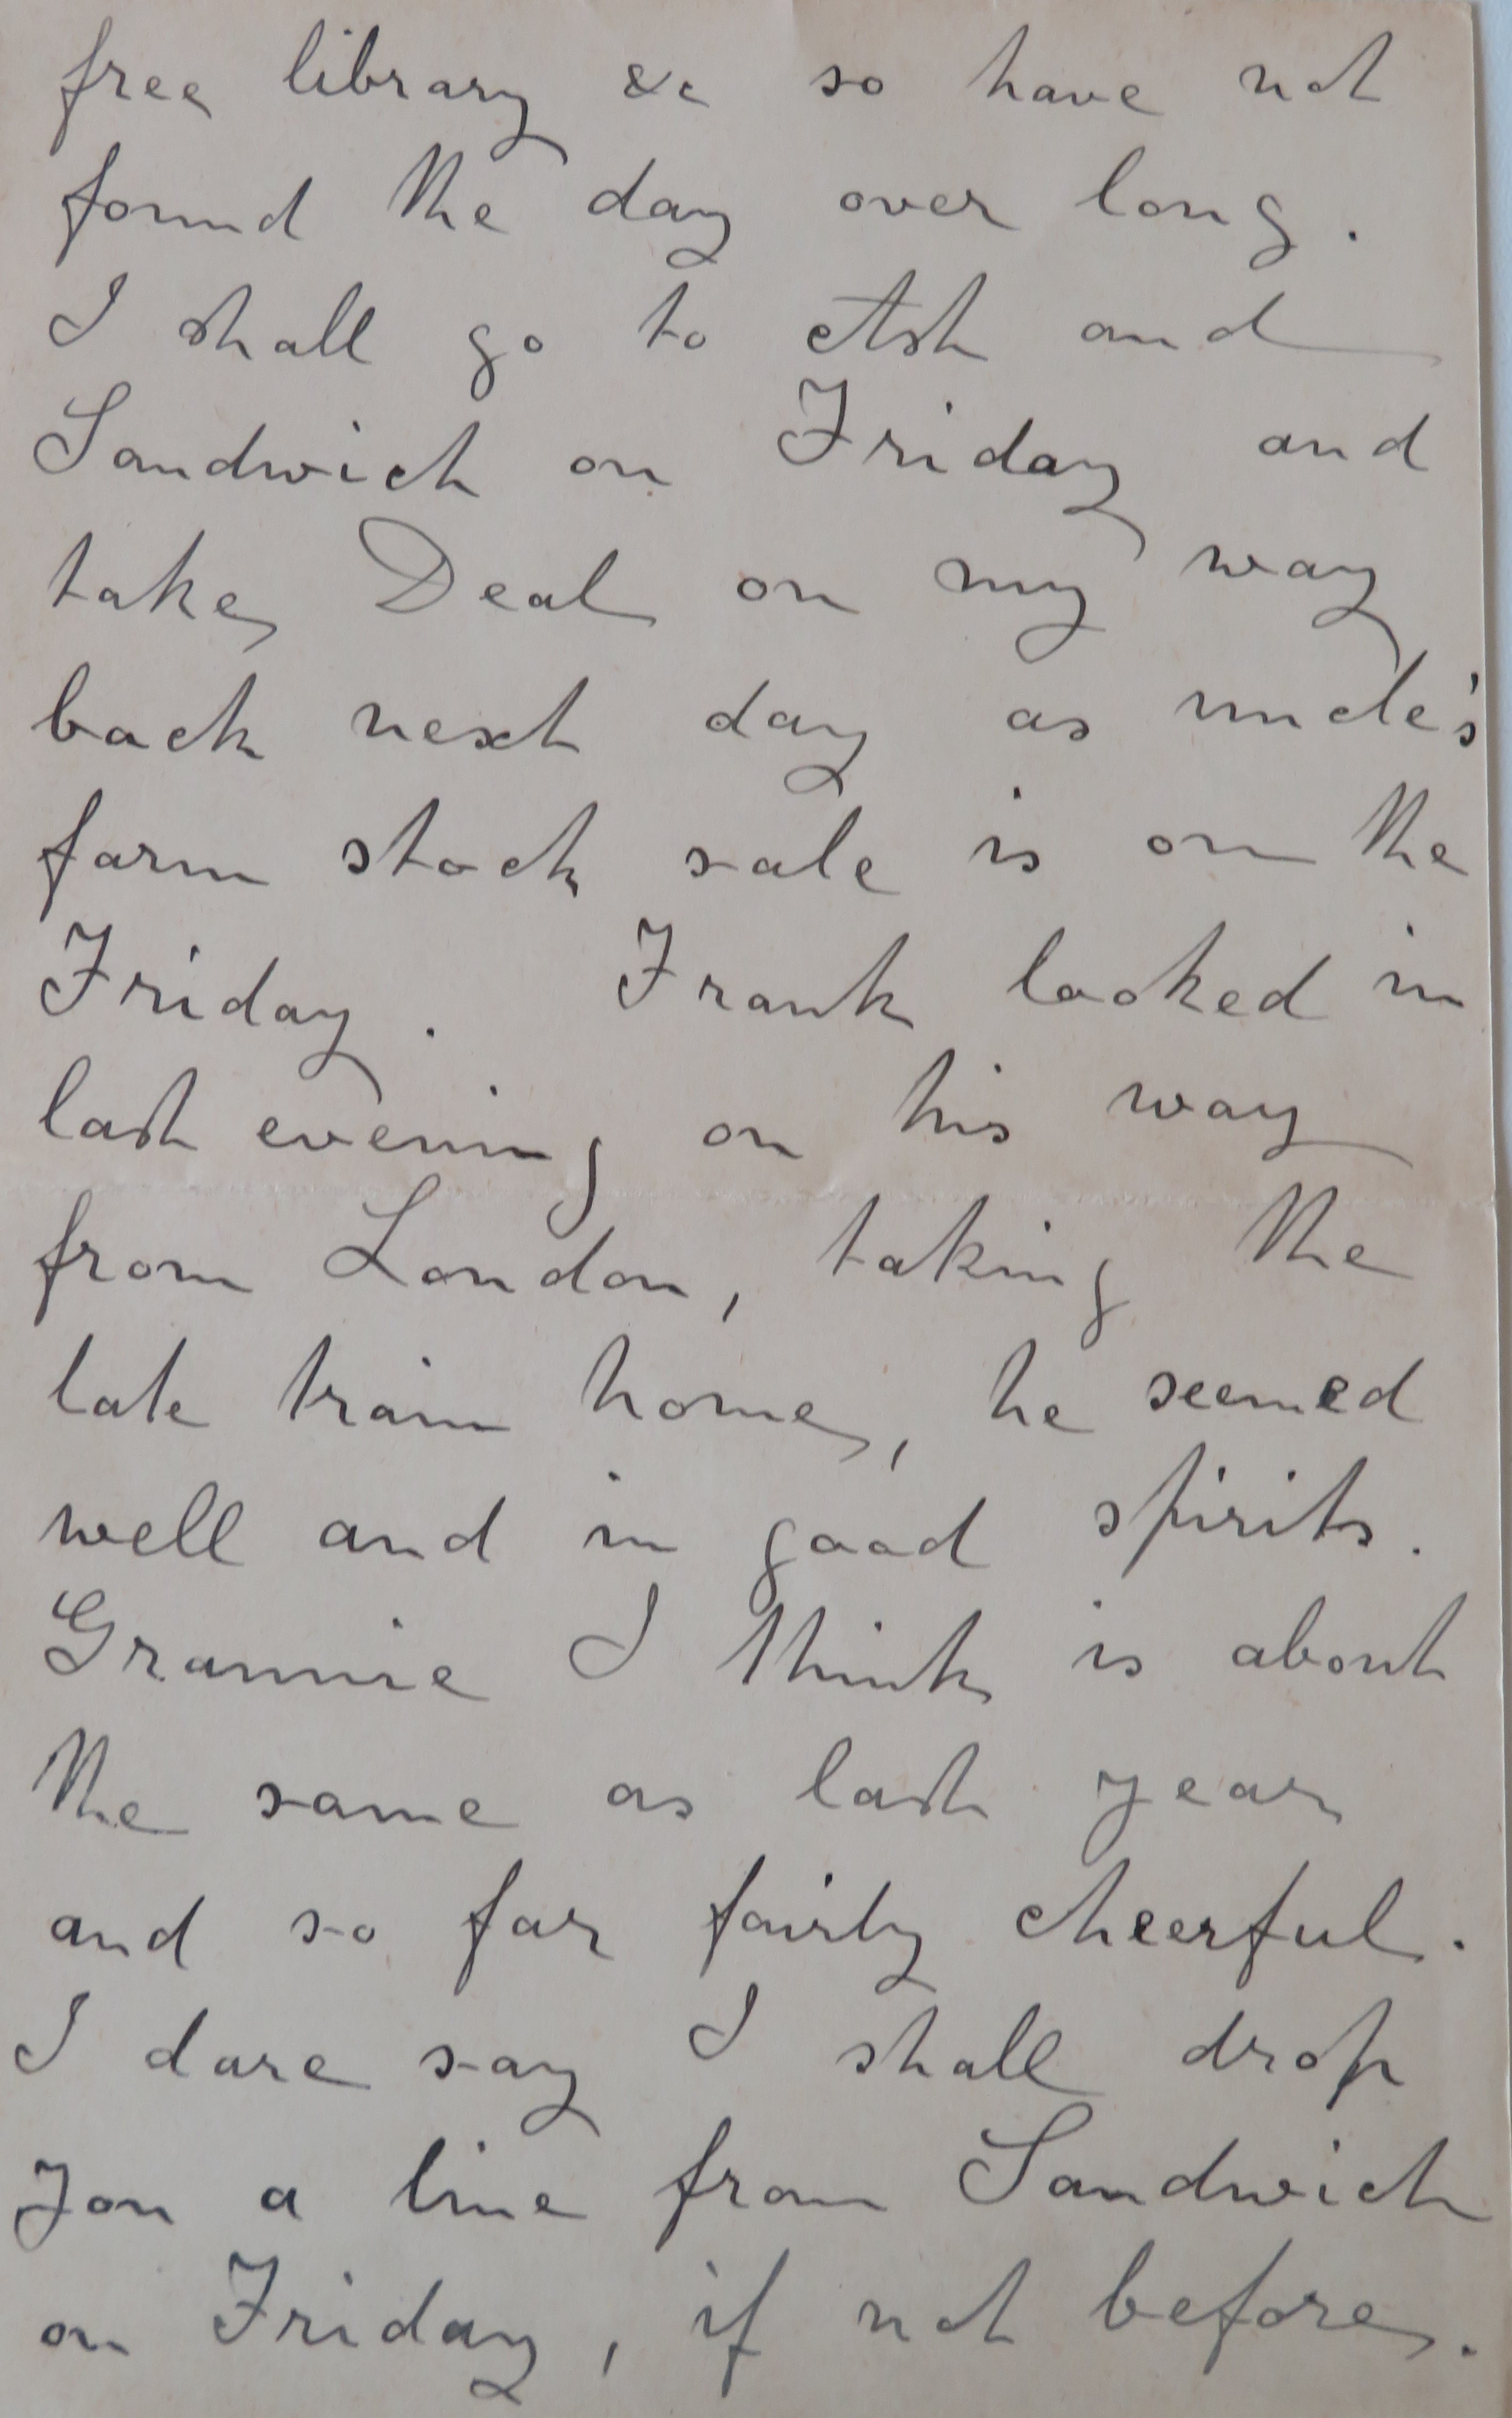 free library &c so have not
found the day over long.
I shall go to Ash and
Sandwich on Friday and
take Deal on my way
back next day as uncle's
farm stock sale is on the
Friday. Frank looked in
last evening on his way
from London, taking the
late train home, he seemed
well and in good spirits.
Grannie I think is about
the same as last year
and so far fairly cheerful.
I dare say I shall drop
you a line from Sandwich
on Friday, if not before.